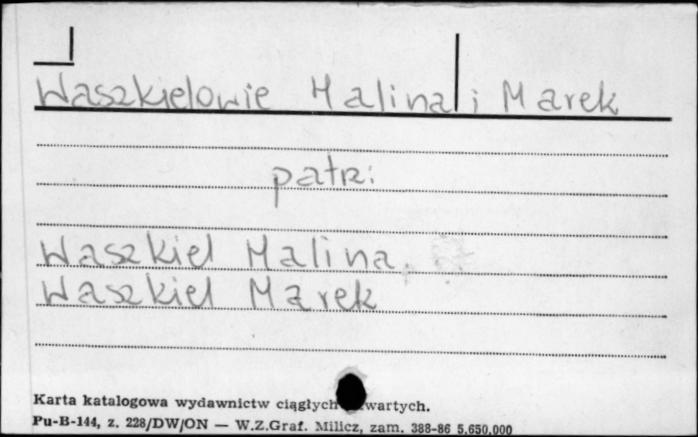 Waszkielowie Halina i Marek
patrz:
Waszkiel Halina
Waszkiel Marek
Karta katalogowa wydawnictw ciągłych
Pu-B-144, z. 228/DW/ON — W.Z.Graf. Milicz, zam. 388-86 5,650,000